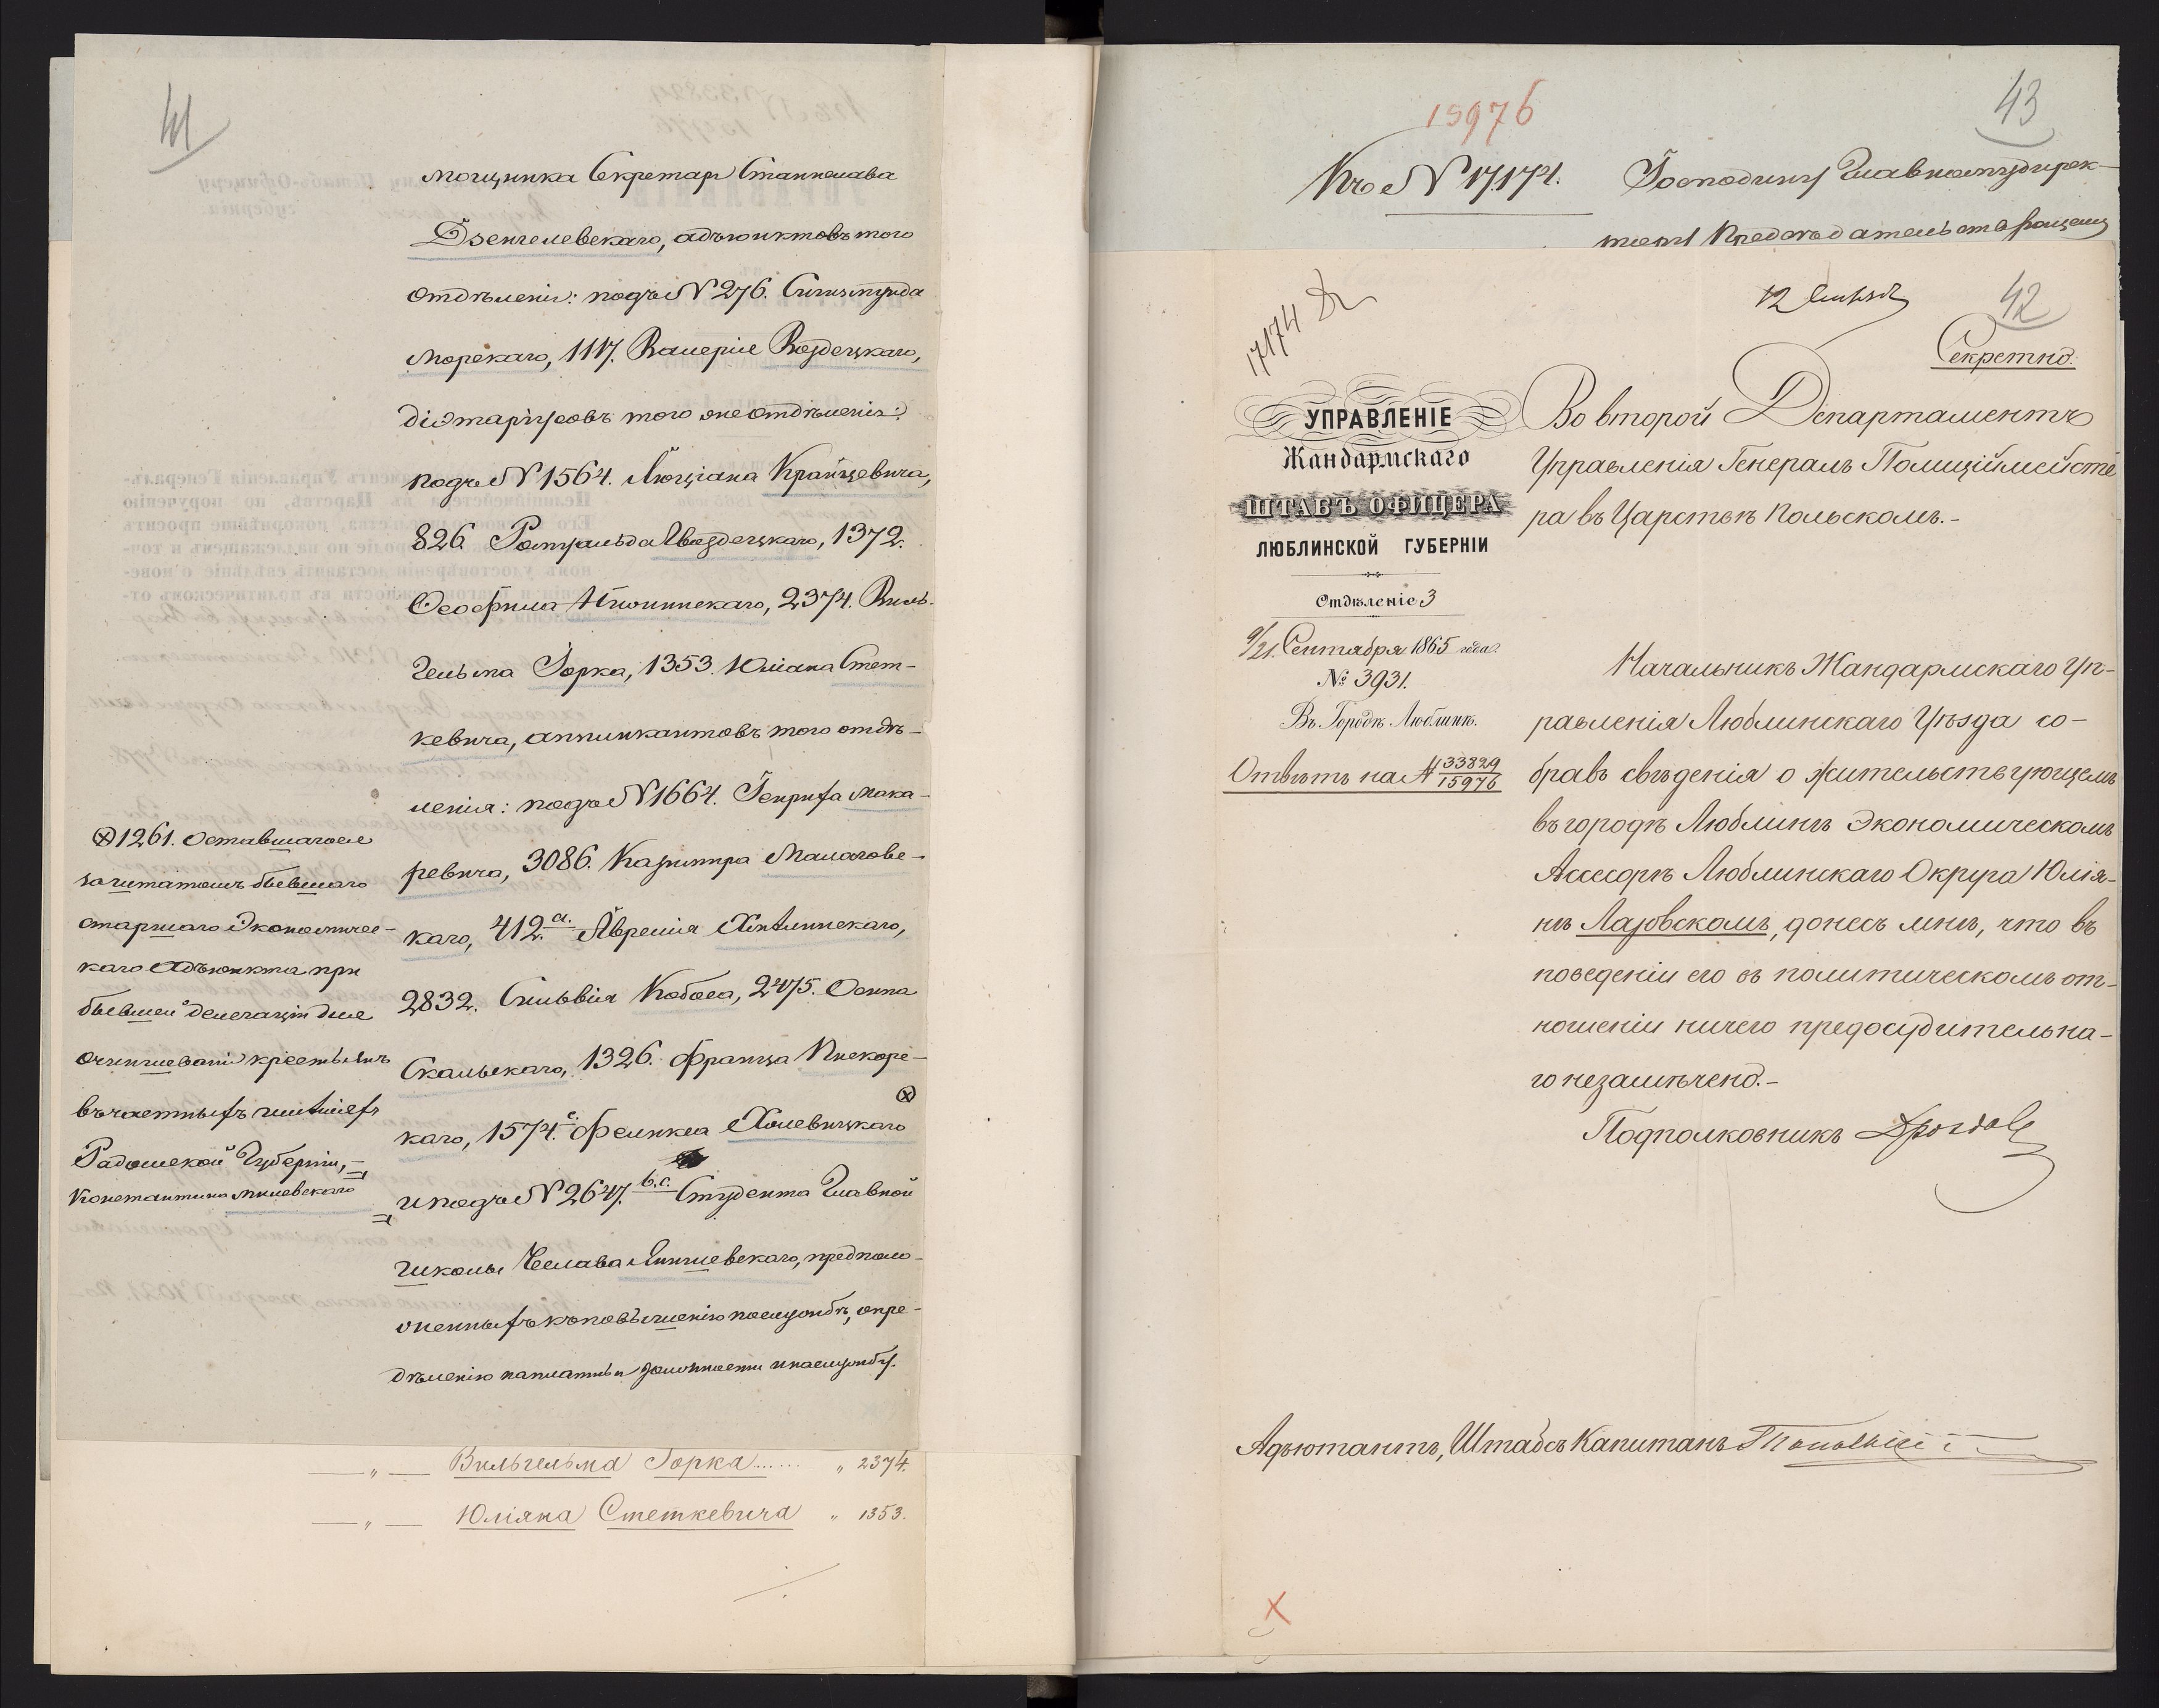 41
мощника Секретаря Станислава
Дзенгелевскаго, адъюнктовъ того
отдѣленія: подъ № 276. Сигизмунда
Морскаго, 1117. Валерія Возд​ецкаго,
діэтаріусовъ того же отдѣленія:
подъ № 1564. Люціана Крайцевича,
826 Ромуальда Гвоздецкаго, 1372.
Ѳеофила 2374. Виль-
гельма Горка, 1353. Юліана Стет-
кевича, аппликантовъ того отдѣ-
ленія: подъ № 1664. Генриха Мака-
ревича, 3086. Казимира Малаговс-
каго, 412.a. Аврелія
2832. Сильвія Кобоса, 2475. Осипа
Скальскаго, 1326. Франца Пискорс-
каго, 1574.c. Феликса Холевицкаго
и подъ № 2647. b.c. Студента Главной
школы Чеслава предполо-
женныхъ къ повышенію по службѣ, опре-
дѣленію на платныя должности и на службу.
1261. Оставшагося
за штатомъ бывшаго
старшаго Экономичес-
каго Адъюнкта при
бывшей делегаціи для
очиншеванія крестьянъ
въ частныхъ имѣніяхъ
Радомской Губерніи,
Константина Милевскаго
— „ — Вильгельма Горка...... „ 2374.
— „ — Юліяна Стеткевича „ 1353.
43
15976
Къ № 17174. Господину Главному Дирек-
тору Предсѣдательствующему
17174
12 Сентября
42
Секретно.
УПРАВЛЕНІЕ
Жандармскаго
ШТАБЪ ОФИЦЕРА
ЛЮБЛИНСКОЙ ГУБЕРНІИ
Отдѣленіе 3
9/21. Сентября 1865 года.
№ 3931.
Въ Городѣ Люблинѣ.
Отвѣтъ на № 33829/15976
Во второй Департаментъ
Управленія Генералъ Полиціймейсте
ра въ Царствѣ Польскомъ.-
Начальникъ Жандармскаго Уп-
равленія Люблинскаго Уѣзда со-
бравъ свѣденія о жительствующемъ
въ городѣ Люблинѣ Экономическомъ
Ассесорѣ Люблинскаго Округа Юлія-
нѣ Лазовскомъ, донесъ мнѣ, что въ
поведеніи его въ политическомъ от-
ношеніи ничего предосудительна-
го незамѣчено.-
Подполковникъ
Адъютантъ, Штабсъ Капитанъ